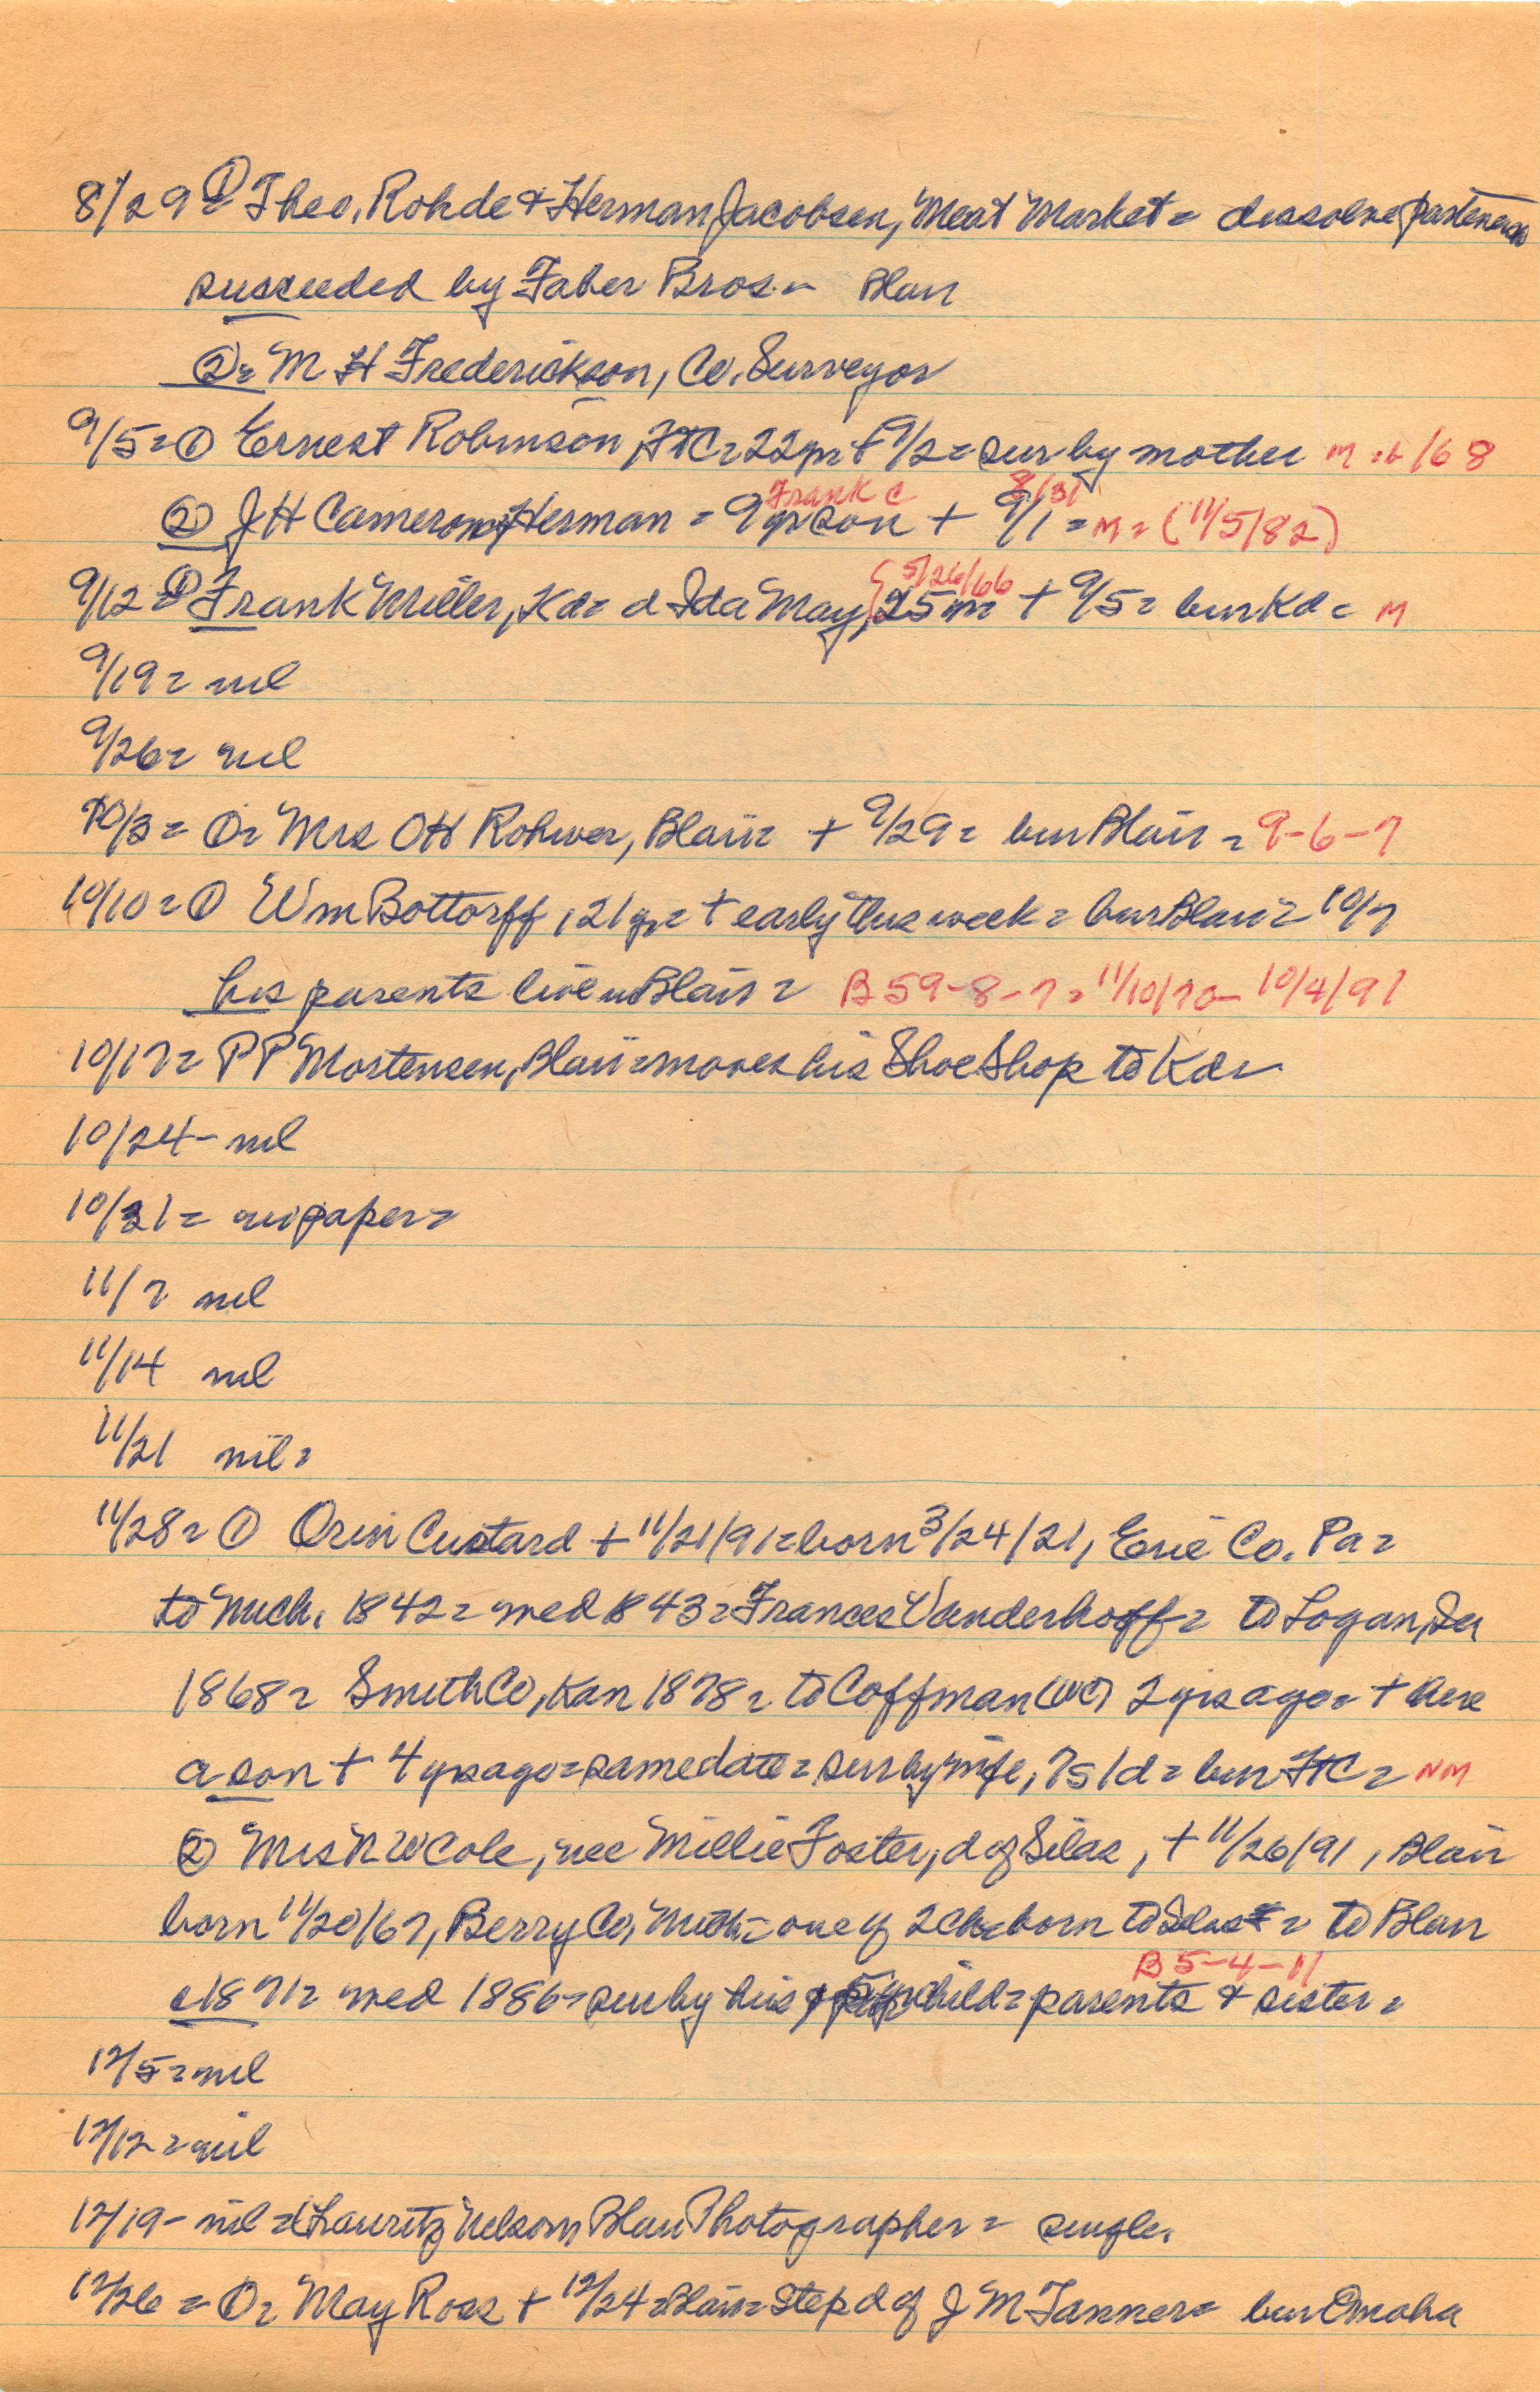 8/29 = ① Theo. Rohde & Herman Jacobsen, Meat Market = dissolve partnership
succeeded by Faber Bros. = Blair
② = M H Frederickson, Co. Surveyor
9/5 = ① Ernest Robinson, FtC = 22 yr + 9/2 = sur by mother M = b /68
② J H Cameron, Herman = 9 yr son + 9/1 = M = (11/5/82)
Frank C 8/31
9/12 = ① Frank Miller, Kd = d Ida May, 25 yr = + 9/5 = bur Kd = M
5/26/66
9/19 = nil
9/26 = nil
10/3 = ① = Mrs OH Rohwer, Blair = + 9/29 = bur Blair = 9-6-7
10/10 = ① Wm Bottorff, 21 yr = + early this week = bur Blair = 10/7
his parents live in Blair = B 59-8-7 = 11/10/70 - 10/4/91
10/17 = P P Mortensen, Blair = moves his Shoe Shop to Kd =
10/24 - nil
10/31 = no paper =
11/7 nil
11/14 nil
11/21 nil =
11/28 = ① Orin Custard + 11/21/91 = born 3/24/21, Erie Co. Pa =
to Mich. 1842 = med 1843 = Frances Vanderhoff = to Logan, Ia
1868 = Smith Co, Kan 1878 = to Coffman (WC) 2 yrs ago = + here
a son + 4 yrs ago = same date = sur by wife, 7s 1d = bur FtC = NM
② Mrs N W Cole, nee Millie Foster, d of Silas, + 11/26/91, Blair
born 11/20/67, Berry Co, Mich = one of 2 ch = born to Silas = to Blair
c1871 = med 1886 = sur by his child = parents & sister =
B 5-4-11
12/5 = nil
12/12 = nil
12/19 - nil = Lauritz Nelson Blair Photographer = single.
12/26 = ① = May Ross + 12/24 = Blair = Step d of J M Tanner = bur Omaha